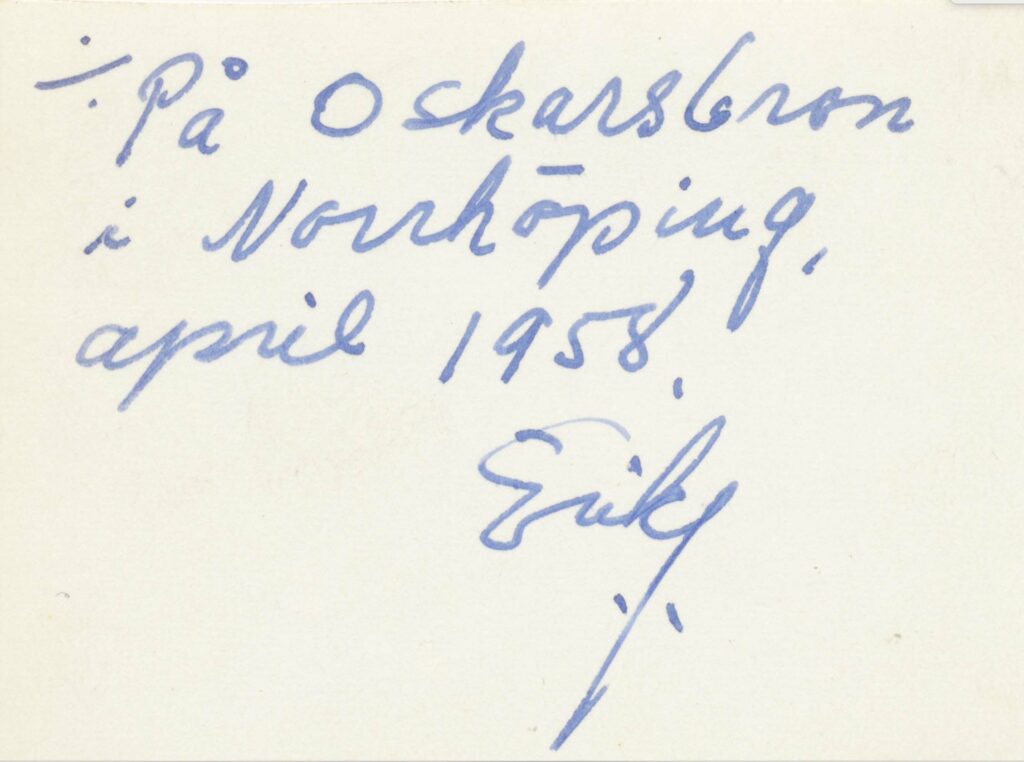 ·/. På Oskarsbron
i Norrköping,
april 1958.
Erik